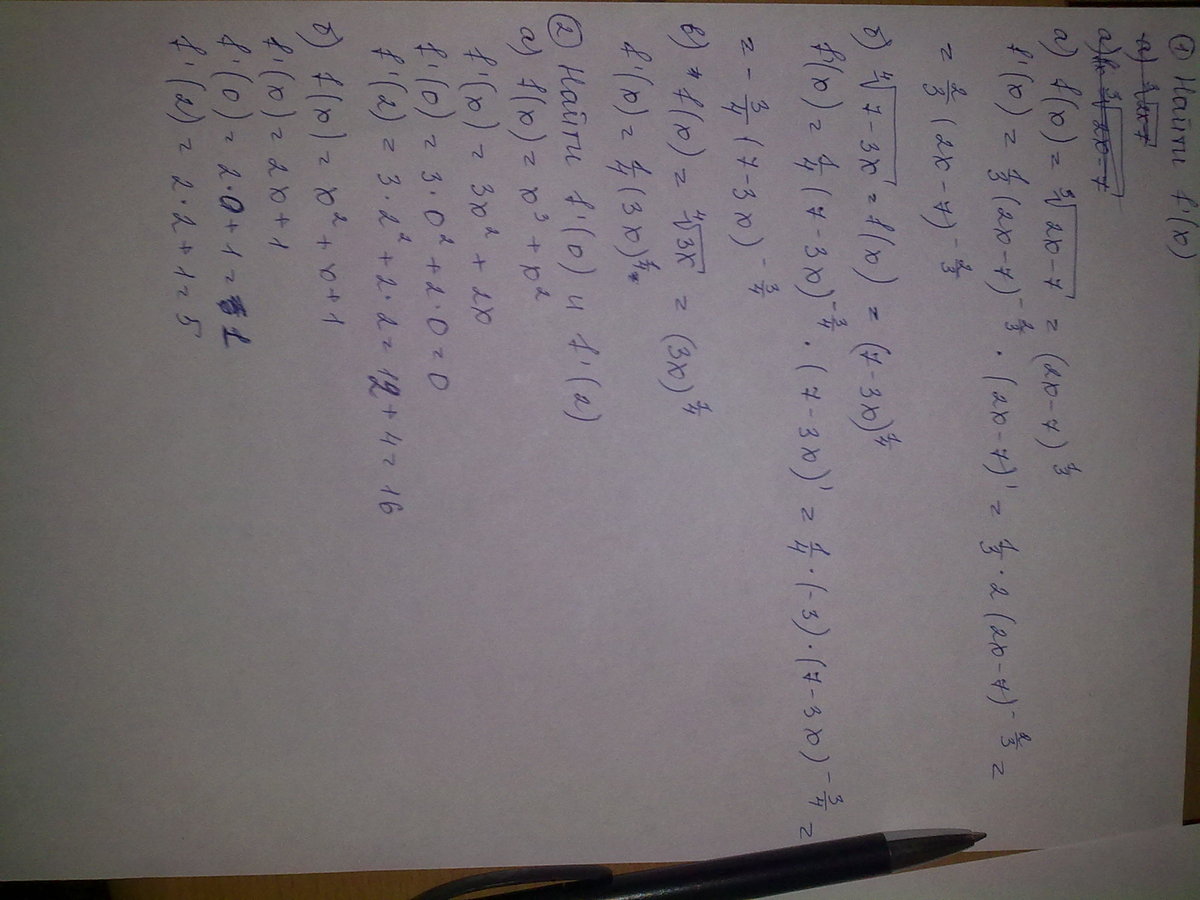 ① Найти f'(x)
а) ∛2x-7
а) ∛2x-7
а) f(x) = ∛(2x-7) = (2x-7)^(1/3)
f'(x) = 1/3 (2x-7)^(-2/3) · (2x-7)' = 1/3 · 2 (2x-7)^(-2/3) =
= 2/3 (2x-7)^(-2/3)
б) ∜(7-3x) = f(x) = (7-3x)^(1/4)
f'(x) = 1/4 (7-3x)^(-3/4) · (7-3x)' = 1/4 · (-3) · (7-3x)^(-3/4) =
= -3/4 (7-3x)^(-3/4)
в) f(x) = ∜(3x) = (3x)^(1/4)
f'(x) = 1/4 (3x)
② Найти f'(0) и f'(2)
а) f(x) = x³ + x²
f'(x) = 3x² + 2x
f'(0) = 3·0² + 2·0 = 0
f'(2) = 3·2² + 2·2 = 12 + 4 = 16
б) f(x) = x² + x + 1
f'(x) = 2x + 1
f'(0) = 2·0 + 1 = 1
f'(2) = 2·2 + 1 = 5